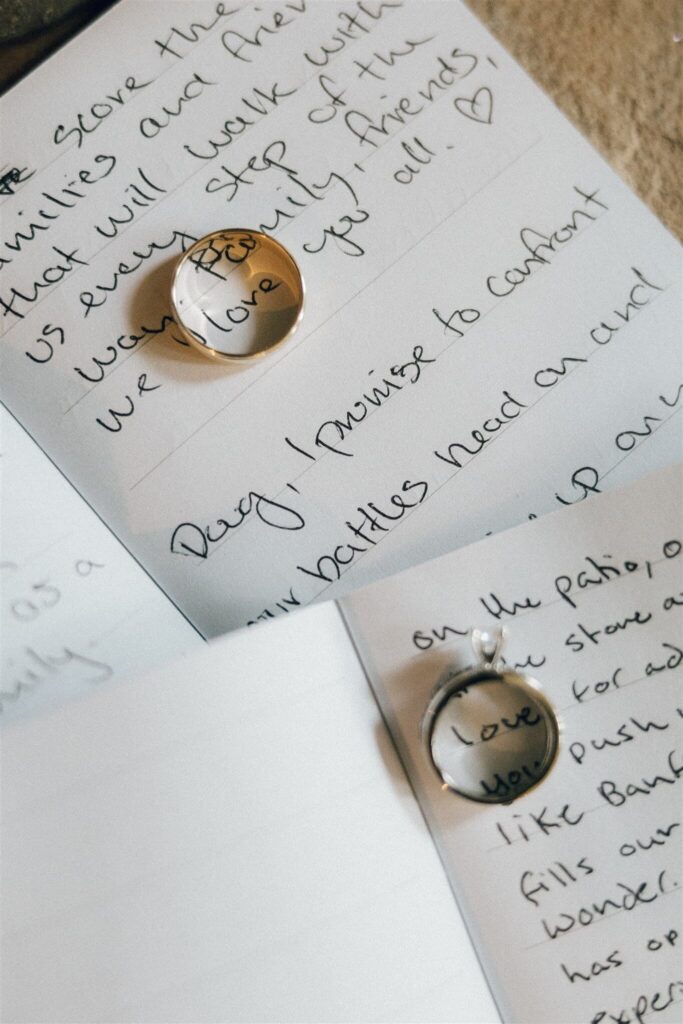 score the
families and frien
that will walk with
us every step of the
way. Family, friends,
we love you all. ♡
Dag, I promise to confront
our battles head on and
up on
as a
mily.
on the patio, o
the store a
for ad
love
you push
like Banf
fills our
wonder.
has op
experi